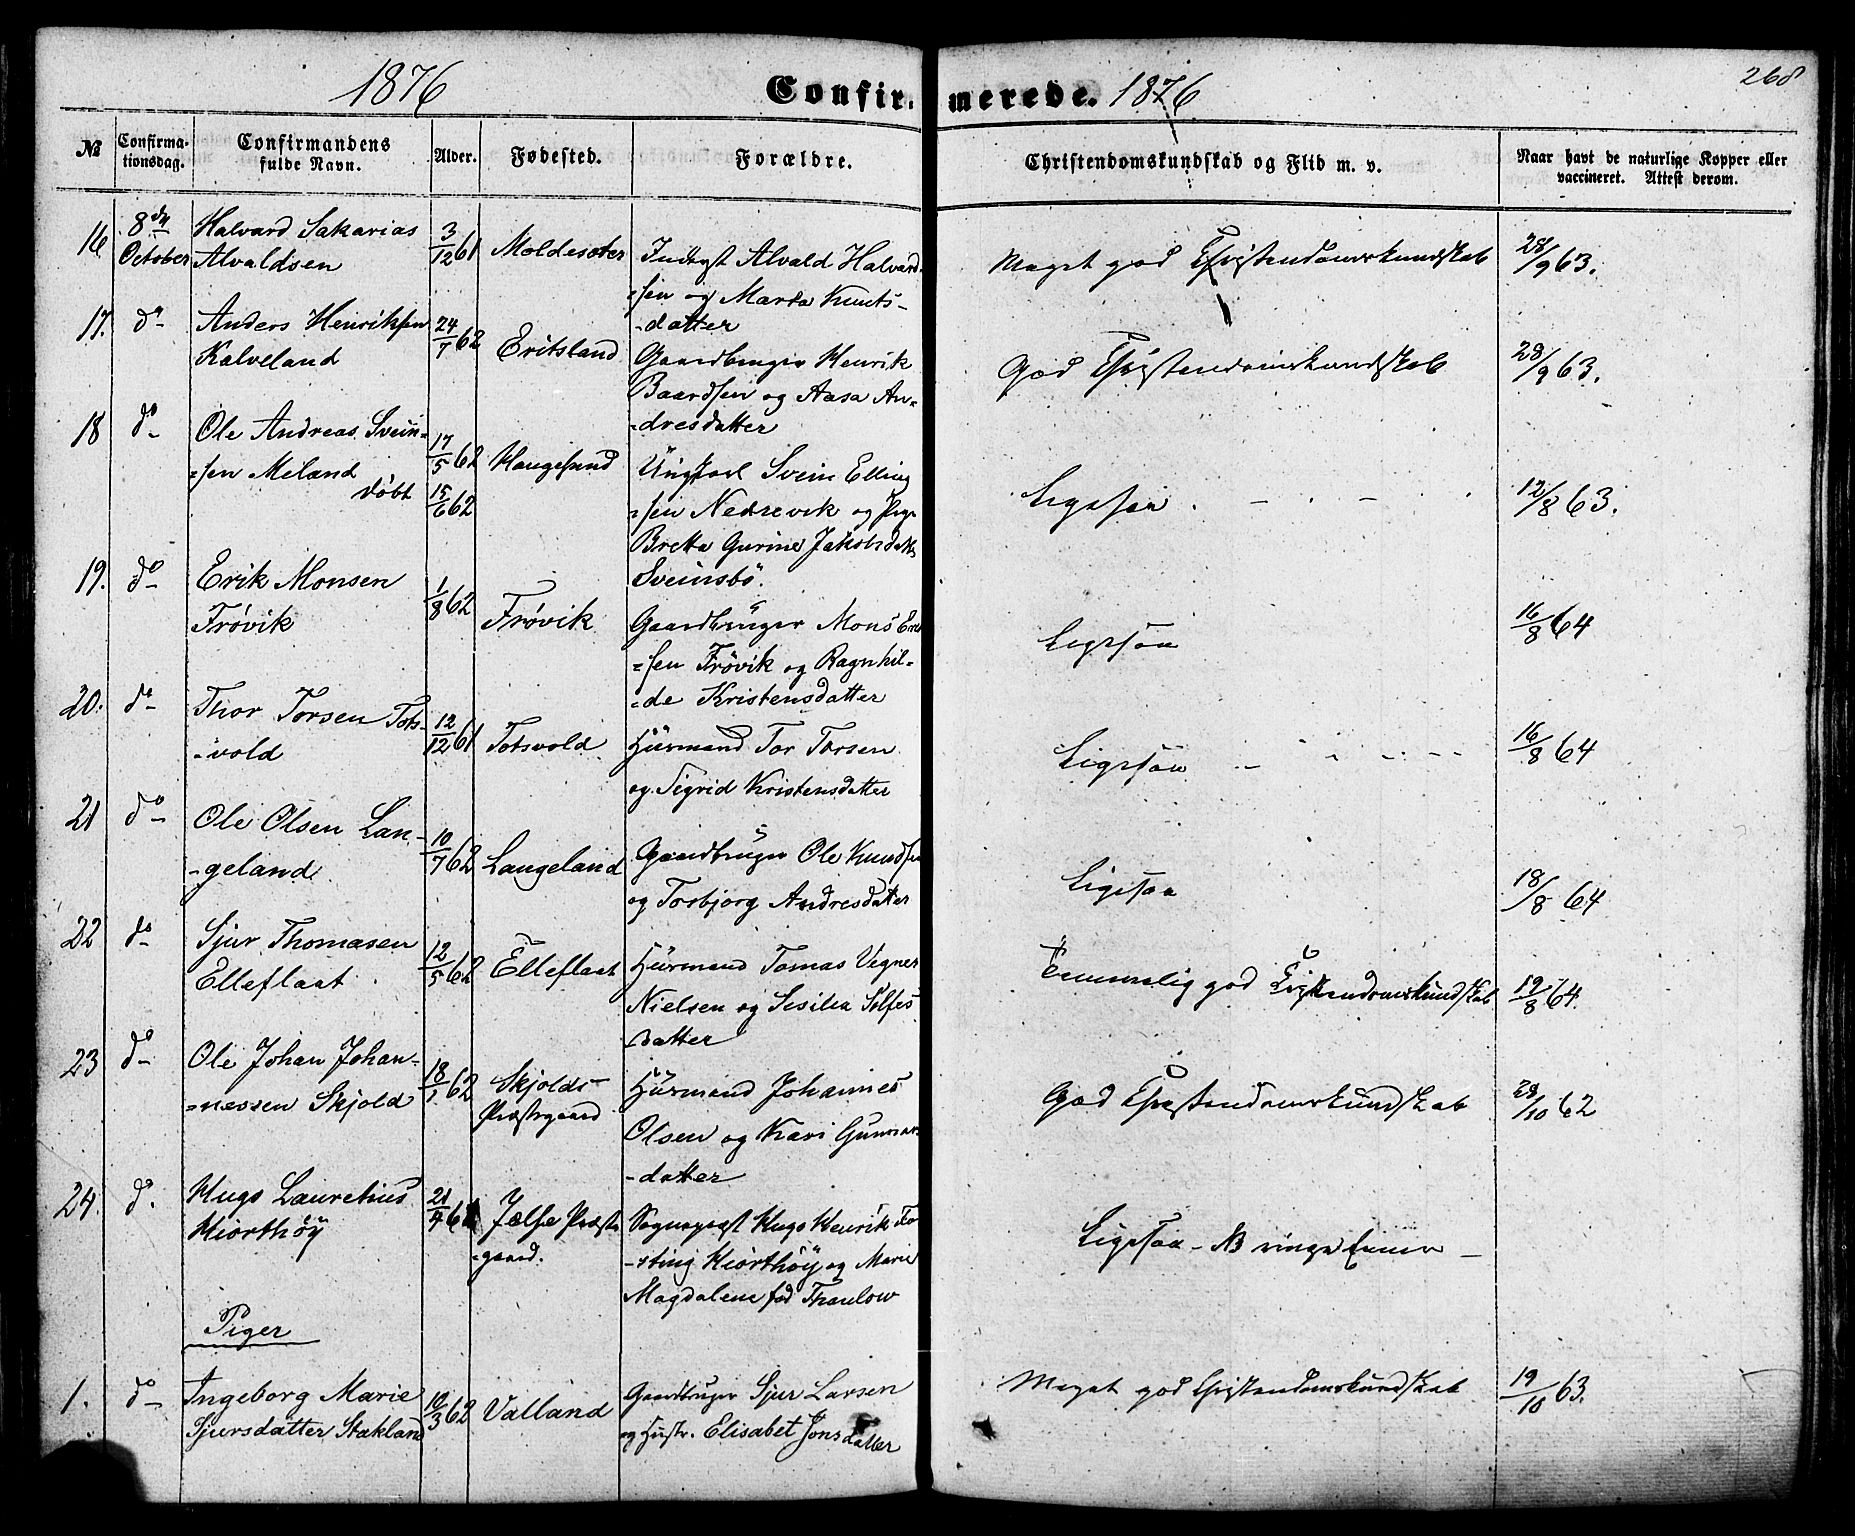 1876 Confirmerede. 1876 268
No Confirmationsdag. Confirmandens fulde Navn. Alder. Fødested. Forældre. Christendomskundskab og Flid m. v. Naar havt de naturlige Kopper eller vaccineret. Attest derom.
16 8de October Halvard Sakarias Alvaldsen 3/12 61 Moldesæter Indsyst Alvald Halvard=
=sen og Marta Knuts-
-datter
Meget god Christendomskundskab 28/9 63.
17. do Anders Henriksen Kalveland 24/7 62 Eritsland Gaardbruger Henrik
Baardsen og Aasa An=
=dresdatter
God Christendomskundskab 28/9 63.
18 do Ole Andreas Svein=
=sen Meland 17/5 62 Haugesund Ungkarl Svein Elling
døbt 15/6 62
=sen Nedrevik og Pige
Britta Gurine Jakobsdatt
Sveinsbö.
Ligesaa - - 12/8 63.
19. do Erik Monsen Frøvik 1/8 62 Frøvik Gaardbruger Mons Erik
=sen Frövik og Ragnhil=
=de Kristensdatter
Ligesaa 16/8 64
20. do Thor Torsen Tots-
-vold 12/12 61 Totsvold Huusmand Tor Torsen
og Sigrid Kristensdatter
Ligesaa 16/8 64
21 do Ole Olsen Lan-
-geland 10/7 62 Langeland Gaardbruger Ole Knudsen
og Torbjorg Andresdatter
Ligesaa 18/8 64
22 do Sjur Thomasen
Elleflaat 12/5 62 Elleflaat Huusmand Tomas Vegner
Nielsen og Sesilia Solfes
datter
Temmelig god Christendomskundskab 19/8 64.
23 do Ole Johan Johan-
=nessen Skjold 18/1 62 Skjolds-
Præstegaard Huusmand Johannes
Olsen og Kari Gunnars
-datter
God Christendomskundskab 28/10 62
24. do Hugo Lauretius
Hiorthöy 21/4 61 Jælse Præste
=gaard. Sognepræst Hugo Henrik Fo
-sting Hiorthöy og Marie
Magdalene fød Thaulow
Ligesaa -
Piger
1. do Ingeborg Marie
Sjursdatter Stakland 10/3 62 Valland Gaardbruger Sjur Larsen
og Hustr. Elisabet Jonsdatter
Meget god Christendomskundskab 19/10 63.